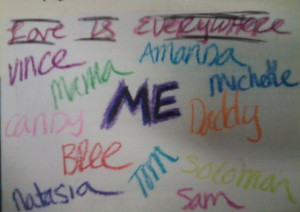 Love Is Everywhere
Vince
Amanda
Mama
Michelle
ME
Candy
Daddy
Bree
Tom
Solomon
Natasia
Sam